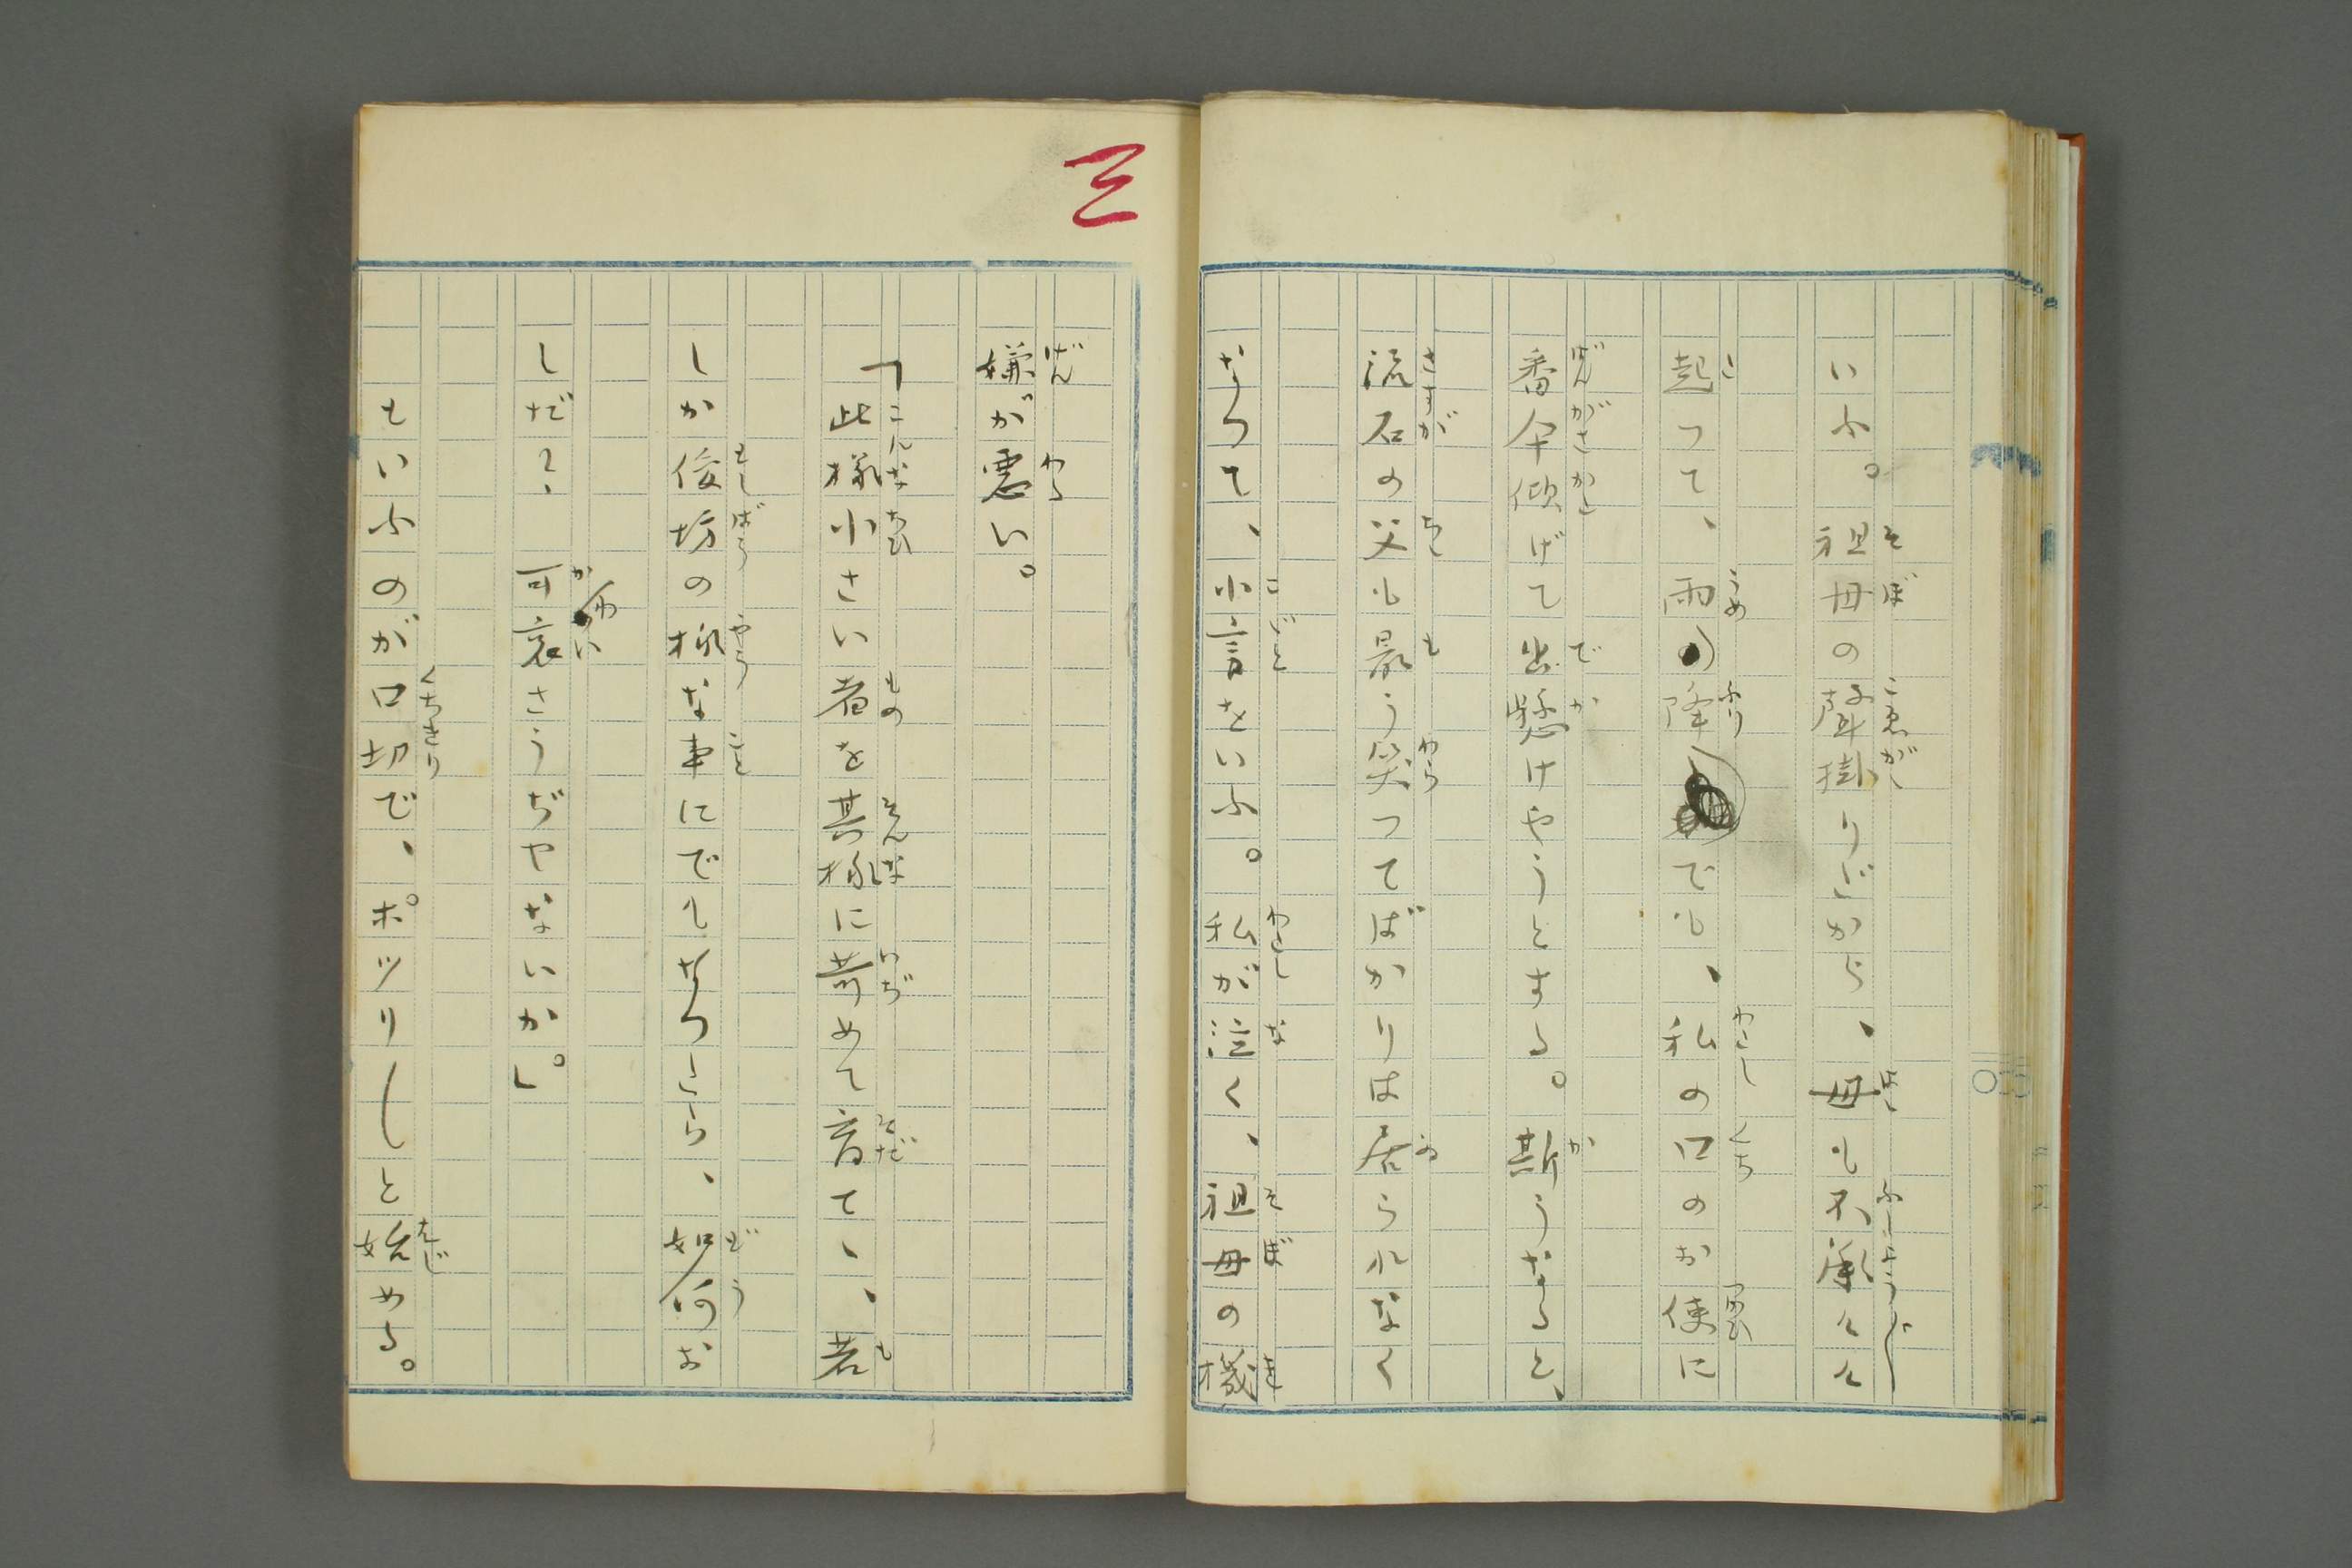 いふ。祖母の聲掛りだから、母も不承々々
起つて、雨の降るのでも、私の口のお使に
番傘傾げて出懸けやうとする。斯うなると、
流石の父も最う笑つてばかりは居られなく
なつて、小言をいふ。私が泣く、祖母の機
三
嫌が悪い。
「此様小さい者を其様に苛めて育てゝ、若
しか俊坊の様な事にでもなつたら、如何お
しだ？、可哀さうぢやないか。」
もいふのが口切で、ポツリ〳〵と始める。